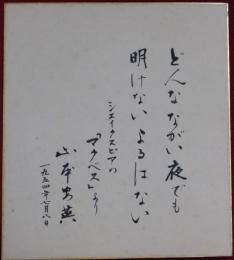 どんなながい夜でも
明けないよるはない
シェイクスピアの
「マクベス」より
山本安英
一九五四年七月八日